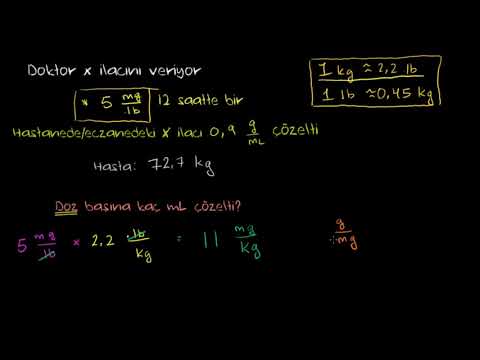 Doktor x ilacını veriyor
1 kg ≈ 2,2 lb
1 lb ≈ 0,45 kg
* 5 mg/lb 12 saatte bir
Hastanede/eczanedeki x ilacı 0,9 g/mL çözelti
Hasta: 72,7 kg
Doz başına kaç mL çözelti?
5 mg/lb x 2,2 lb/kg = 11 mg/kg
g/mg